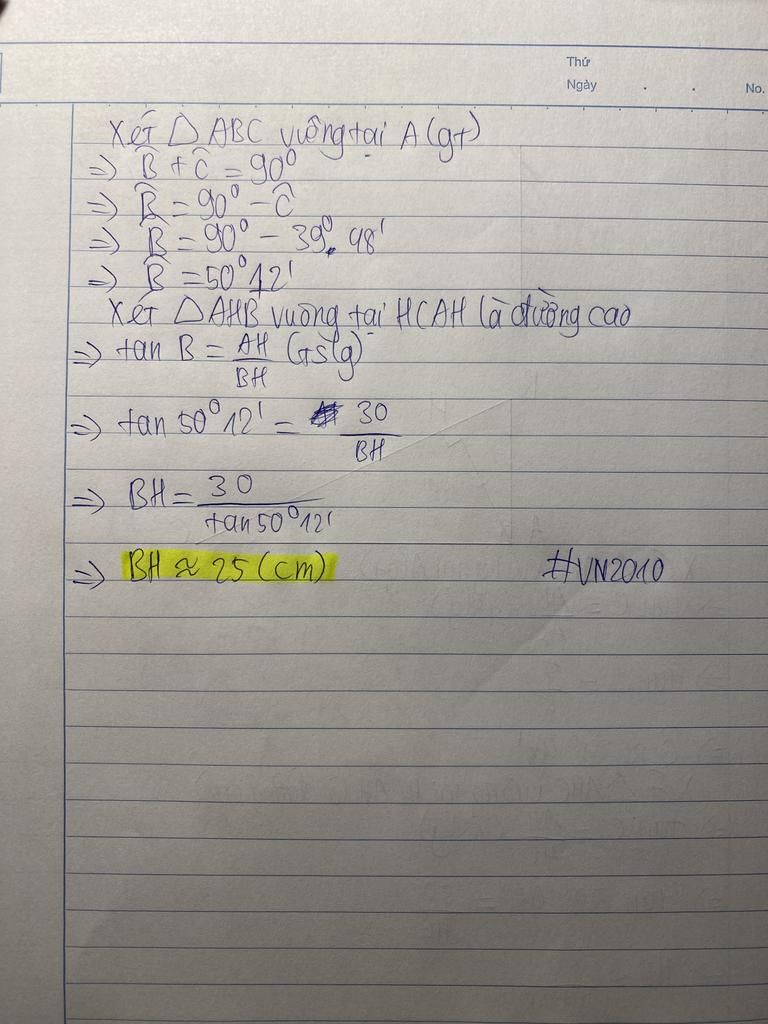 Thứ
Ngày . . No.
Xét △ABC vuông tại A (gt)
=> B̂ + Ĉ = 90⁰
=> B̂ = 90⁰ - Ĉ
=> B̂ = 90⁰ - 39⁰. 48'
=> B̂ = 50⁰12'
Xét △AHB vuông tại H(AH là đường cao
=> tan B = AH/BH (tslg)
=> tan 50⁰12' = 30/BH
=> BH = 30/tan50⁰12'
=> BH ≈ 25 (cm) #VN2010